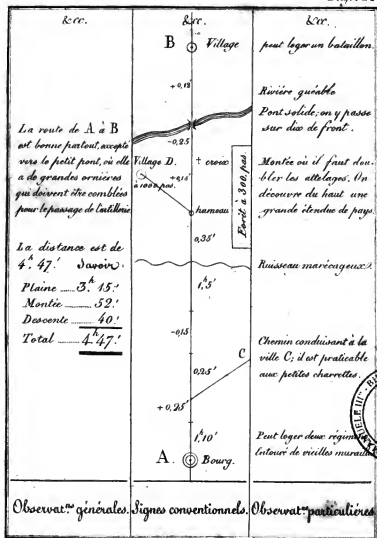 &cc.
La route de A à B
est bonne partout, excepté
vers le petit pont, où elle
a de grandes ornières
qui doivent être comblées
pour le passage de l'artillerie
La distance est de
4.h 47.' Savoir:
Plaine 3.h 15.'
Montée 52.'
Descente 40.'
Total 4.h 47.'
Observat.ns générales.
&cc.
B Village
+0,12'
-0,25
Village D. + croix
à 1000 pas. +0,15'
hameau
Forêt à 300 pas
0,35'
1,h5'
-0,15
C
0,25'
+0,25'
1,h10'
A. Bourg.
Signes conventionnels.
&cc.
peut loger un bataillon.
Rivière guéable
Pont solide; on y passe
sur dix de front.
Montée où il faut dou-
bler les attelages. On
découvre du haut une
grande étendue de pays.
Ruisseau marécageux.
Chemin conduisant à la
ville C; il est praticable
aux petites charrettes.
Peut loger deux régim
Entouré de vieilles muraill
Observat.ns particulières